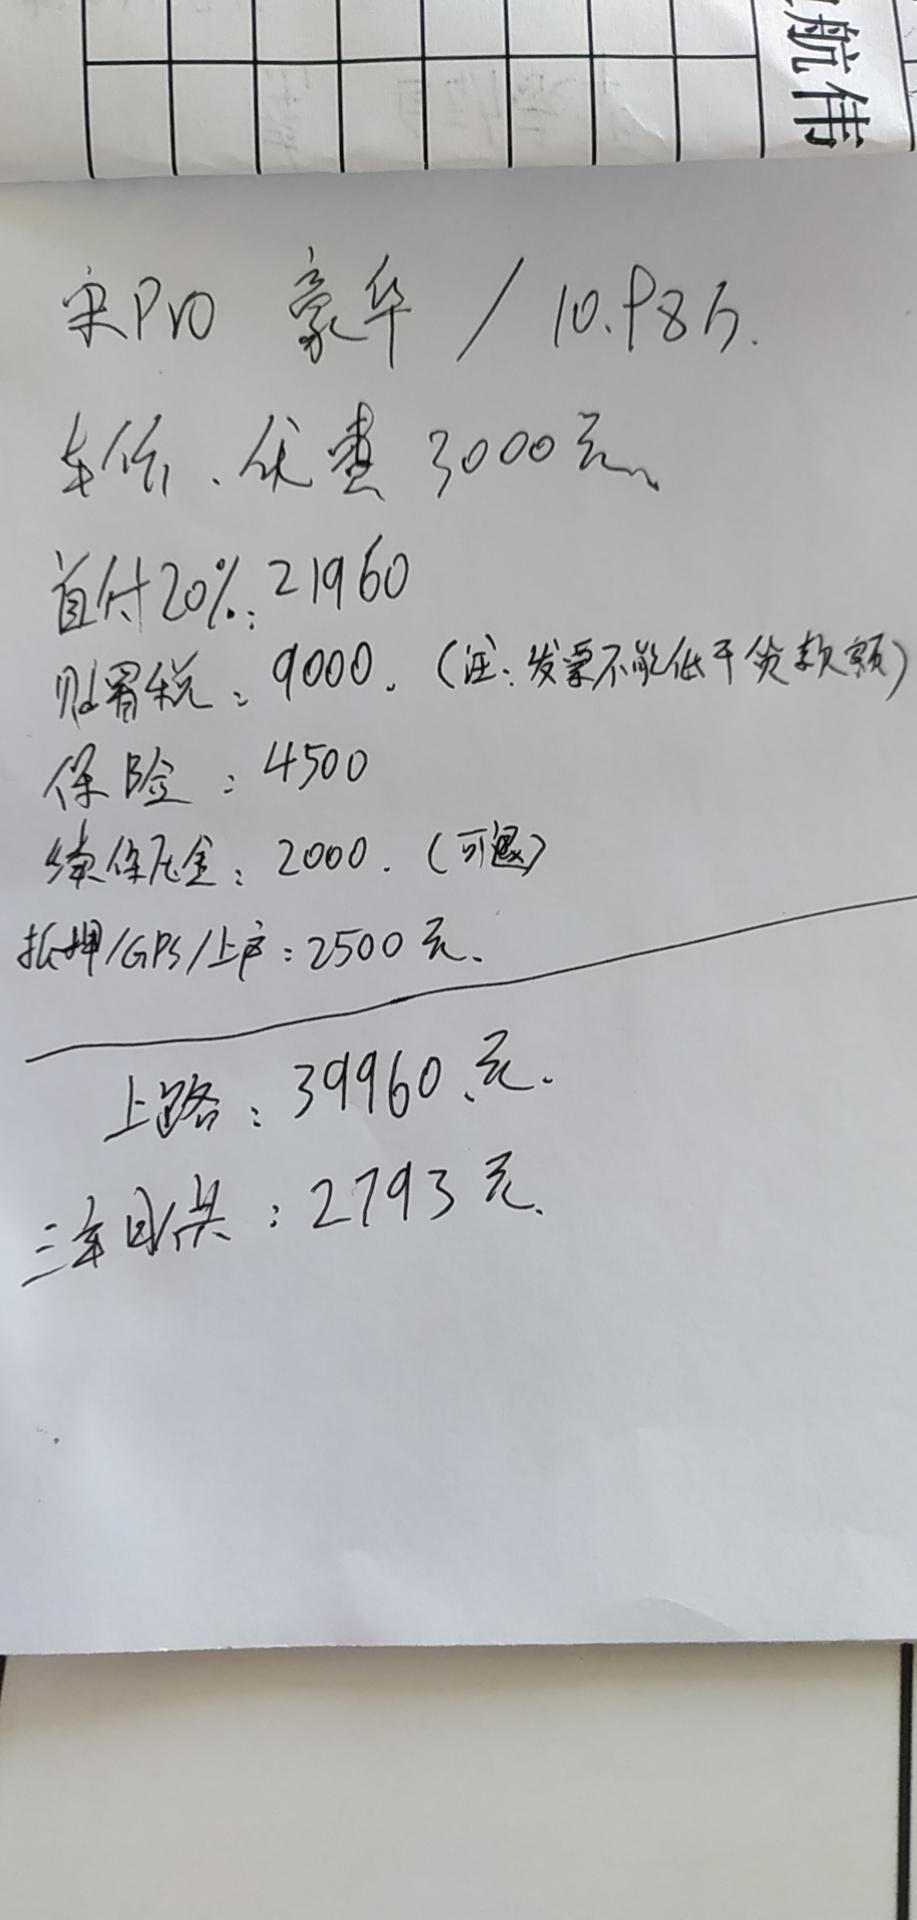 航伟
宋Pro 豪华 / 10.98万.
车价、优惠3000元、
首付20%:21960
购置税:9000.(注:发票不能低于贷款额)
保险:4500
续保压金:2000.(可退)
抵押/GPS/上户:2500元.
上路:39960元.
三年月供:2793元.